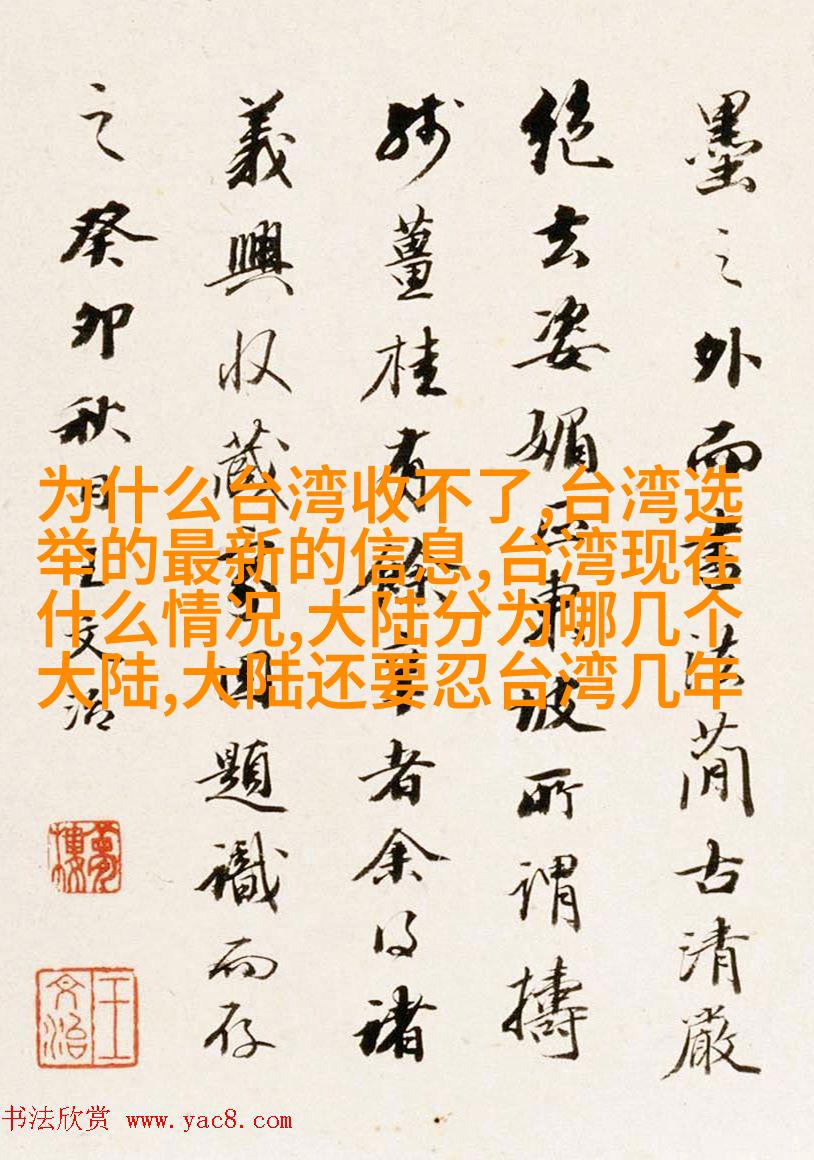 墨之外而畫法簡古清嚴
絕去姿媚正東坡所謂擣
殘薑桂有餘辛者余得諸
義興收藏家因題識而存
之癸卯秋日王文治
夢樓
王文治
为什么台湾收不了,台湾选
举的最新的信息,台湾现在
什么情况,大陆分为哪几个
大陆,大陆还要忍台湾几年
书法欣赏 www.yac8.com